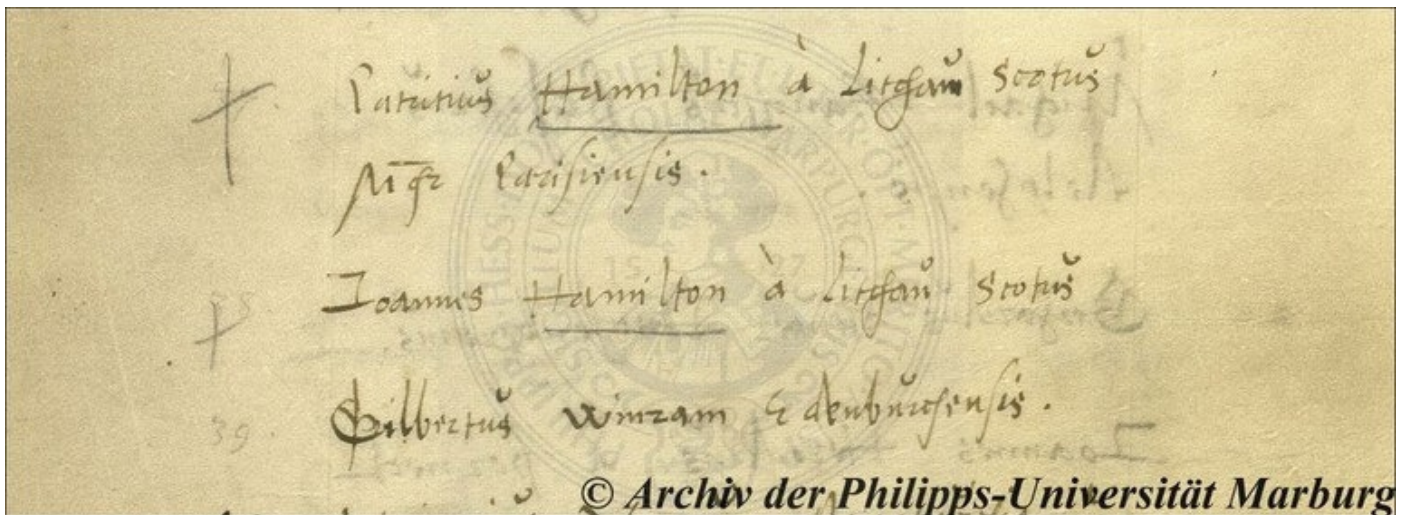 Patritius Hamilton à Litgau Scotus
Mgr Parisiensis.
Ioannes Hamilton à Litgau Scotus
Gilbertus Winram Edenburgensis.
39
© Archiv der Philipps-Universität Marburg